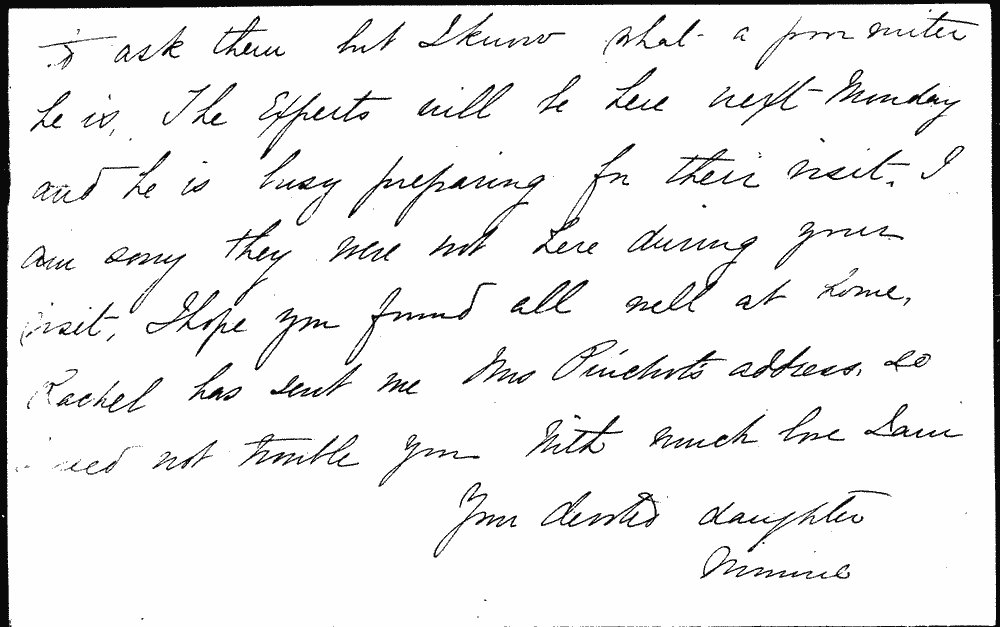 to ask them but I know what a poor writer
he is. The Experts will be here next Monday
and he is busy preparing for their visit. I
am sorry they were not here during your
visit. I hope you found all well at home.
Rachel has sent me Mrs Pinchot's address. so
need not trouble you With much love I am
Your devoted daughter
Minnie